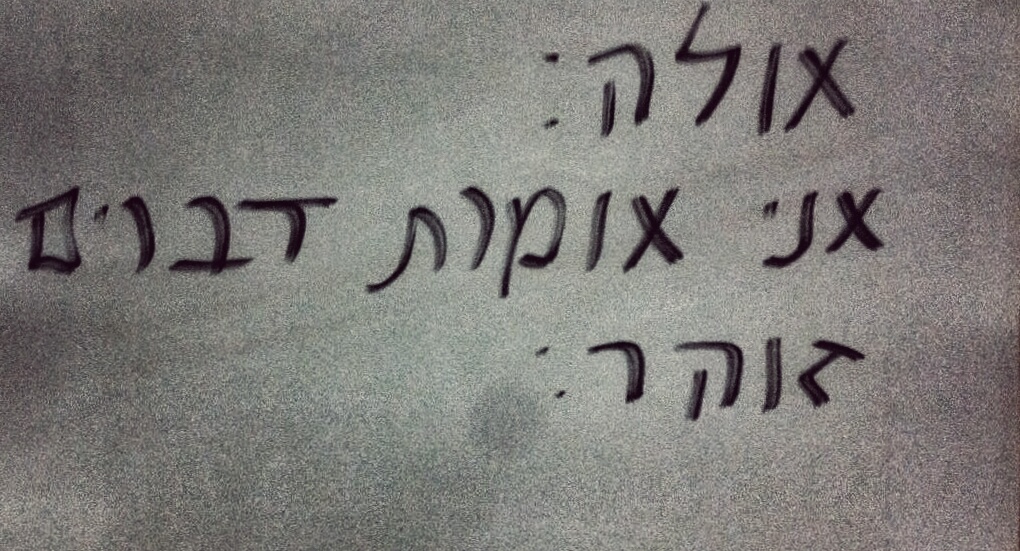 אולה:
אני אומרת דברים
זוהר: